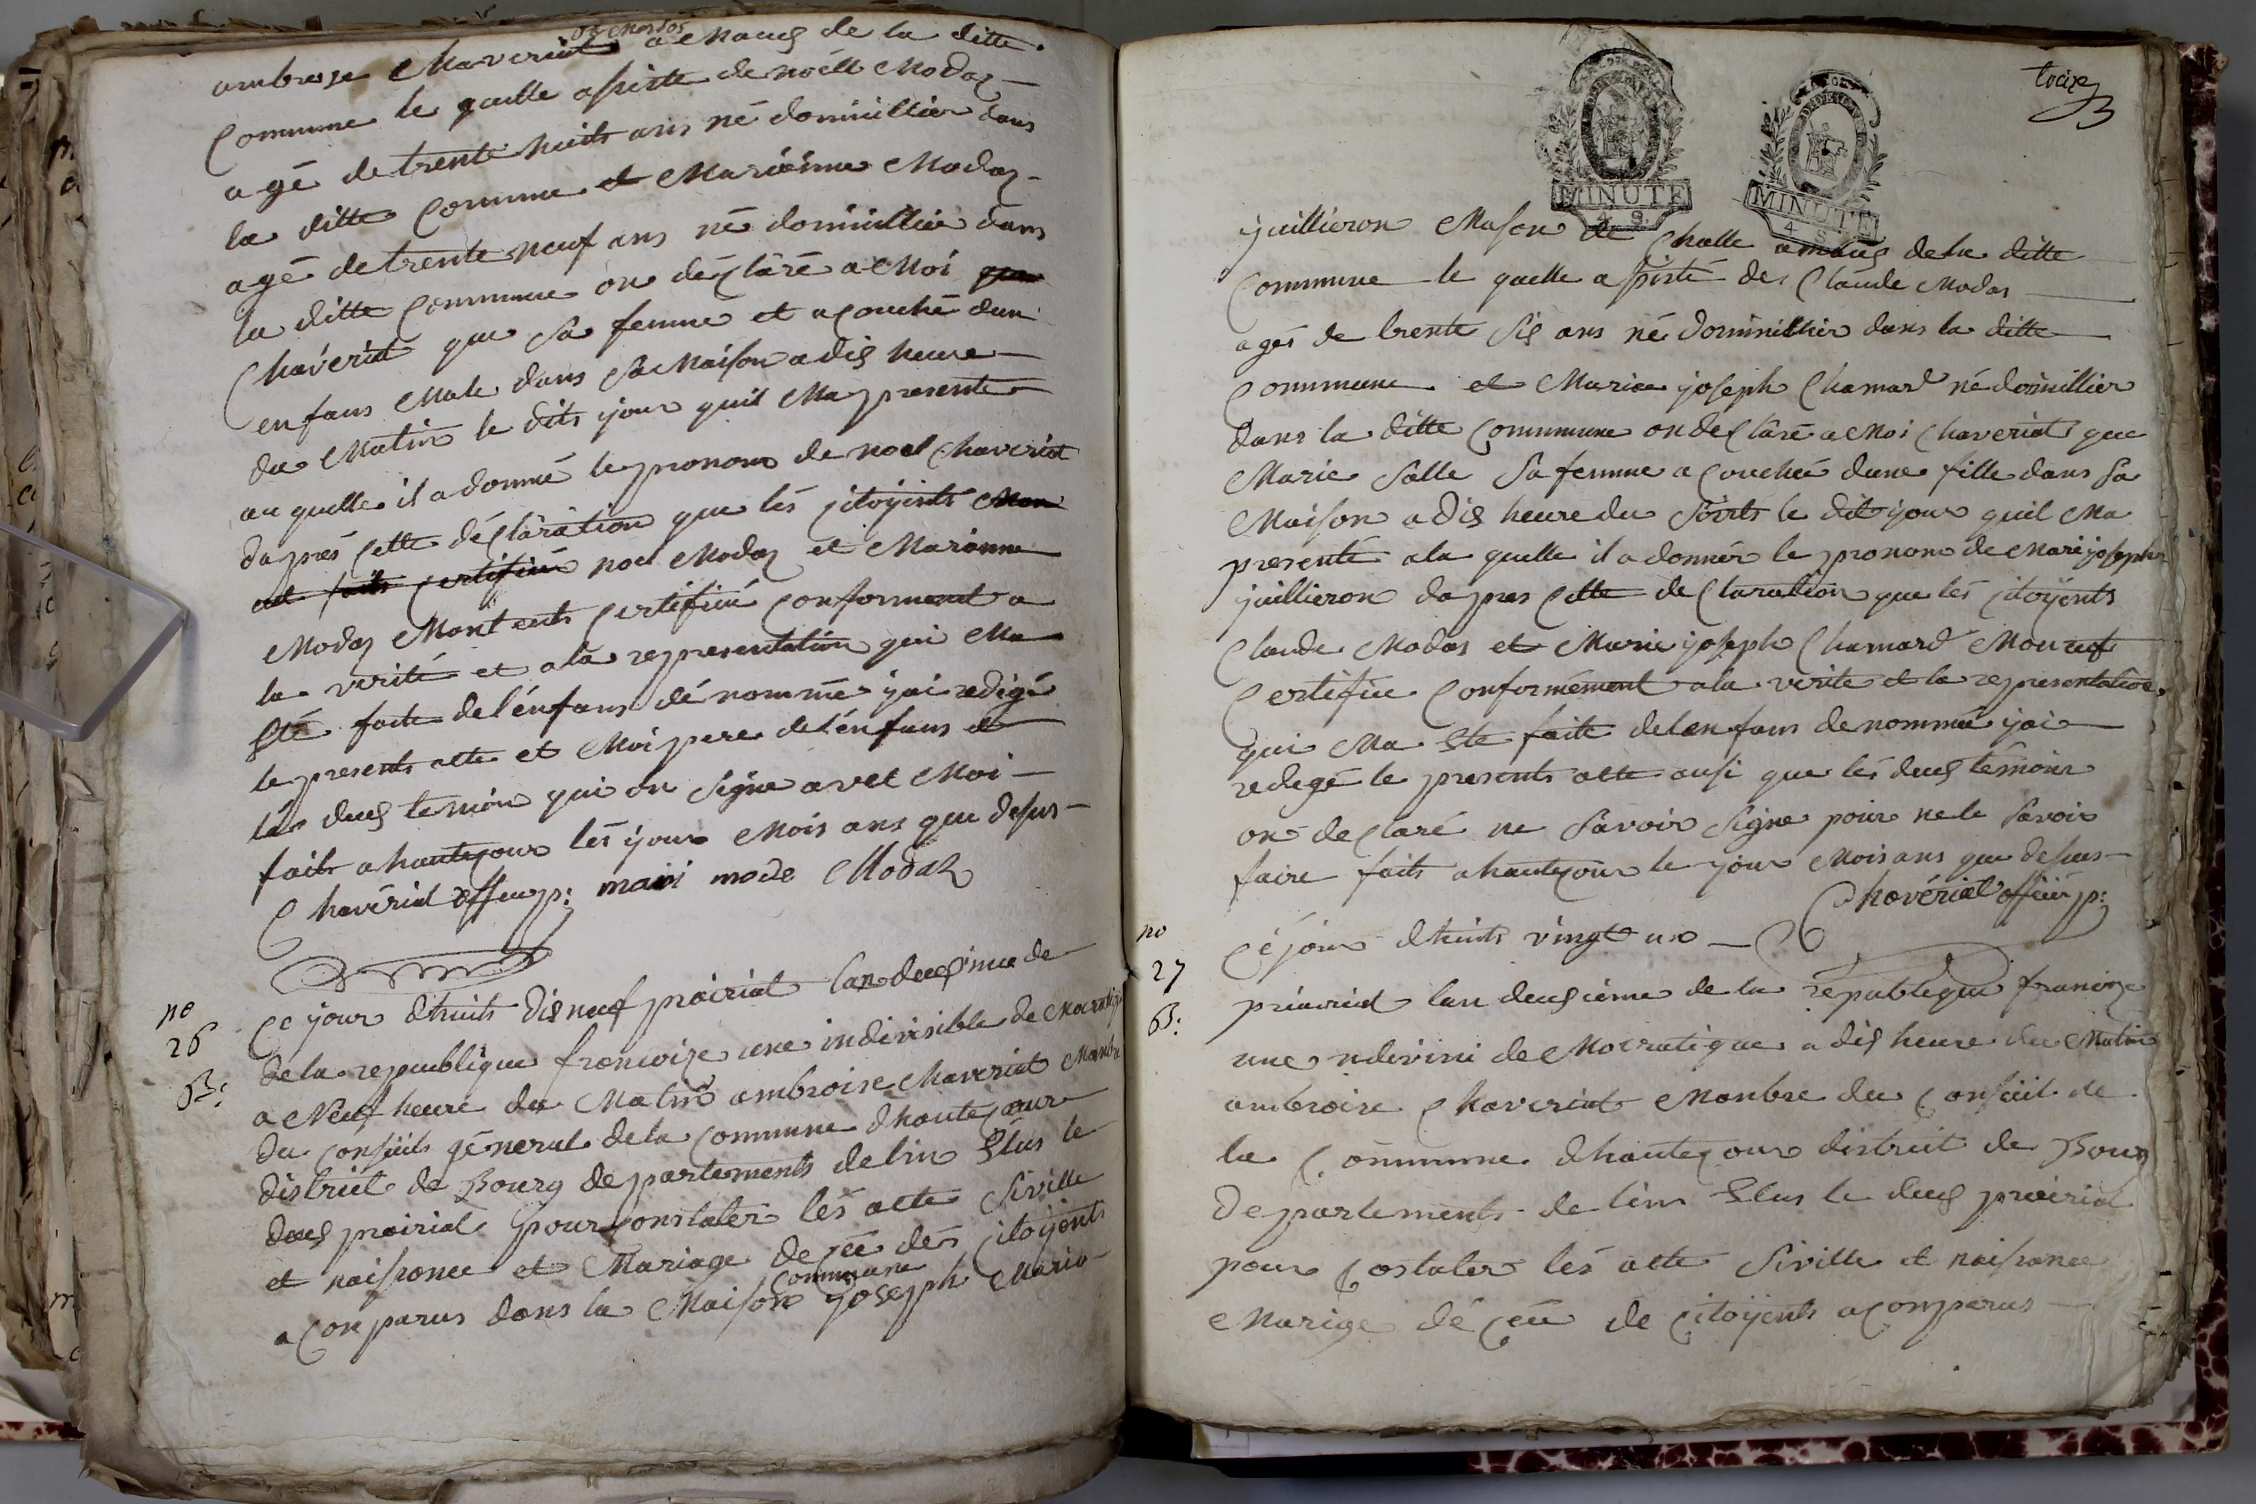 ou modos
ambroyse Chaveriat a Mans de la ditte
Commune le quelle assiste de noëll Modaz
agé de trente huits ans né dominillier dans
la ditte Comune et Mariânne Modaz
agé de trente neuf ans né dominillié dans
la ditte Commune on déClâré a Moi
Chavériat que sa femme et acouché dun
enfans Male dans sa Maison a dis heure
du Matin le dits jour quil Ma presente
au quelle il a donné le pronom de noel Chaveriat
dapres cette déClâration que lés citoyints
certifiié noel Modaz et Marianne
Modaz Mont ents certifiié conforment a
la verité et a la representation qui Ma
Eté faite del'énfans dé nommé jai redigé
le presents atte et Moi pere del'énfans et
lés deus temoin qui on signe avet Moi
faits a hautecour lés jour Mois ans que desus
Chavériat offieu p: mari mode Modaz
no
26
B:
Ce jour dhuits disneuf prairiat lan deusieme de
de la republique francoize une indivisible de Mocratiq
a Neuf heure du Matin ambroise Chaveriat Manbre
du conseils géneral de la commune dhautecour
distriet de Bourg departements delin Elus le
deus prairial pour constater lés atte siville
et naissance et Mariage deceé dés citoyents
commune
a Conparus dans la Maison joseph Maria
toize
MINUTE
4 S.
MINUTE
4 S
juillieron Mason de Challe a mans dela ditte
Commune le quelle assisté de Claude Modas
agés de trente sis ans né dominillier dans la ditte
Commune et Marie joseph Chamard né dominillier
dans la ditte Commune on deClâré a Moi Chaveriat que
Marie Salle sa femme a couchée dune fille dans sa
Maison a dis heure du soirts le dit jour quil Ma
presenté ala quelle il a donnér le pronom de Mari joseph
juillieron dapres Cette de Claration que lés citoyents
Claude Modas et Marie joseph Chamard Mon
Certifiie Conformément ala verite et la representation
qui Ma Ete faite delenfans denommée jai
redegé le presents atte ausi que lés deus témoin
on de Claré ne Savoir Signe pour nele Savoir
faire faits a hautecour le jour Mois ans que desus
Chavériat offiié p:
no
27
B:
Cé jour dhuits vingt un
priairiat lan deusième de la republique francoize
une ndivini de Mocratique a dis heure du Matin
ambroise Chaveriat Manbre du Conseil de
la Commune dhautecour distriet de Bourg
Departements de lin Elus le deus prairial
pour Costater lés atte siville et naisance
Marige déceü de citoyents aconparus